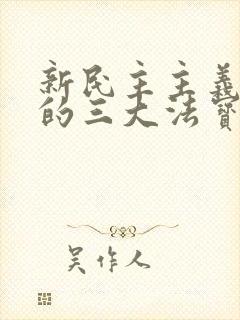 新民主主義
的三大法寶
吴作人